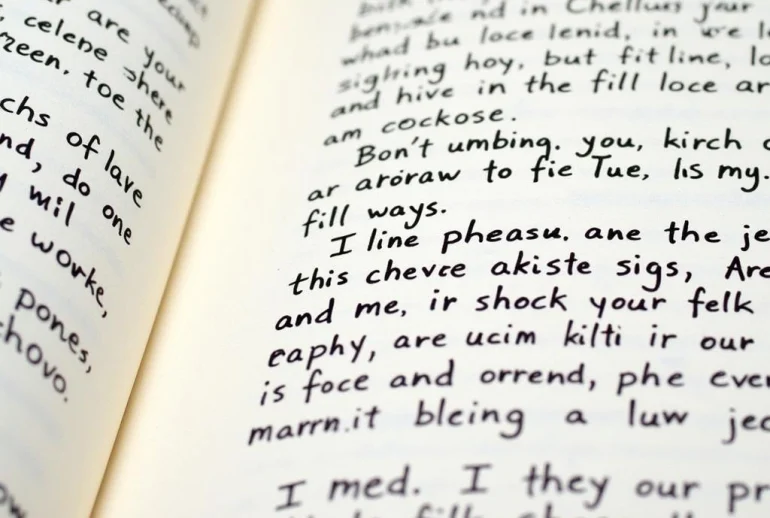 are your
celene shere
toe the
chs of lave
nd, do one
mil
e worke,
pones,
chovo.
nd in Chellues your
whad bu loce lenid, in we
sighring hoy, but fit line,
and hive in the fill loce ar
am cockose.
Bon't umbing. you, kirch
ar aroraw to fie Tue, lis my.
fill ways.
I line pheasu. ane the je
this chevce akiste sigs, Are
and me, ir shock your felk
eaphy, are ucim kilti ir our
is foce and orrend, phe ever
marrn.it bleing a luw jec
I med. I they our pr